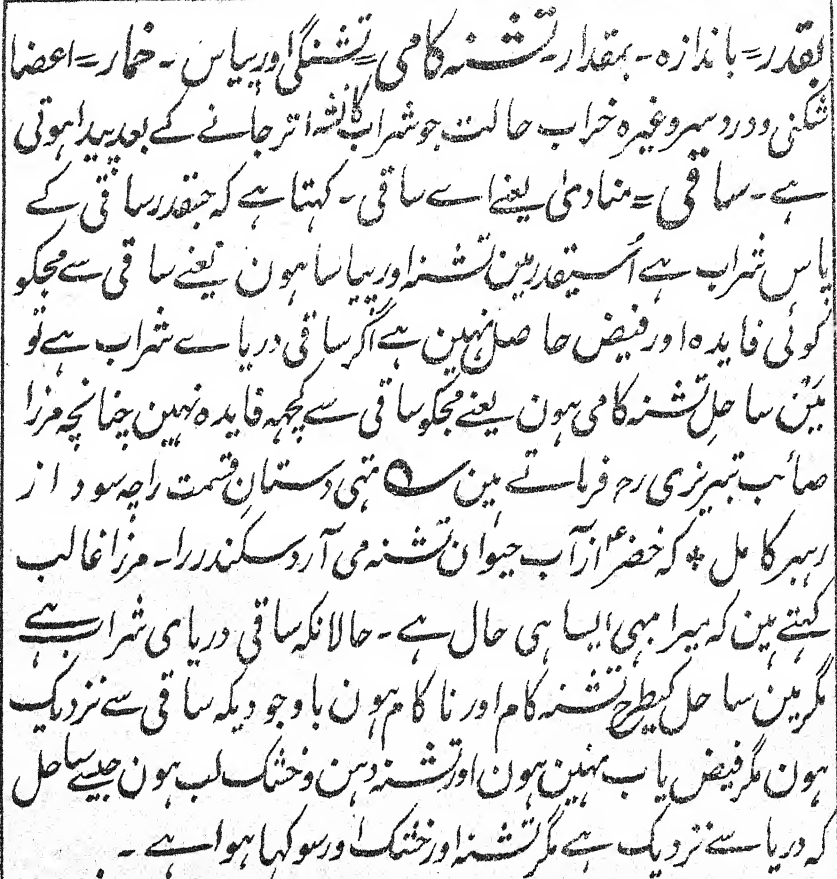 بقدر = باندازہ ۔ بمقدار ۔ تشنہ کامی = تشنگی اور پیاس ۔ خمار = اعضا
شکنی و درد سر وغیرہ خراب حالت جو شراب کا نشہ اتر جانے کے بعد پیدا ہوتی
ہے ۔ ساقی = منادیٰ یعنے اے ساقی ۔ کہتا ہے کہ جقدر ساقی کے
پاس شراب ہے اُسیقدر مین تشنہ اور پیاسا ہون یعنے ساقی سے مجکو
کوئی فایدہ اور فیض حاصل نہین ہے اگر ساقی دریاے شراب ہے تو
مَیْن ساحلِ تشنہ کامی ہون یعنے مجکو ساقی سے کچہہ فایدہ نہین چنانچہ مرزا
صائب تبریزی رح فرماتے ہین ؎ تہی دستانِ قسمت را چہ سود از
رہبر کامل * کہ خضرؑ از آب حیوان تشنہ می آرد سکندر را ۔ مرزا غالب
کہتے ہین کہ میرا بہی ایسا ہی حال ہے ۔ حالانکہ ساقی دریای شراب ہے
مگر مین ساحل کیطرح تشنہ کام اور ناکام ہون باوجودیکہ ساقی سے نزدیک
ہون مگر فیض یاب نہین ہون اور تشنہ دہن و خشک لب ہون جیسے ساحل
کہ دریا سے نزدیک ہے مگر تشنہ اور خشک اور سوکہا ہوا ہے ۔